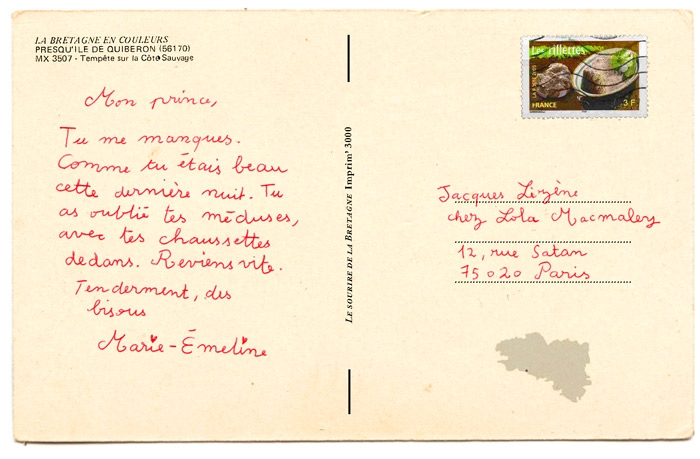 LA BRETAGNE EN COULEURS
PRESQU'ILE DE QUIBERON (56170)
MX 3507 - Tempête sur la Côte Sauvage
Mon prince,
Tu me manques.
Comme tu étais beau
cette dernière nuit. Tu
as oublié tes méduses,
avec tes chaussettes
dedans. Reviens vite.
Tenderment, des
bisous
Marie-Émeline
LE SOURIRE DE LA BRETAGNE Imprim' 3000
Les rillettes
FRANCE
3 F
Jacques Lézène
chez Lola Macmaley
12, rue Satan
75020 Paris